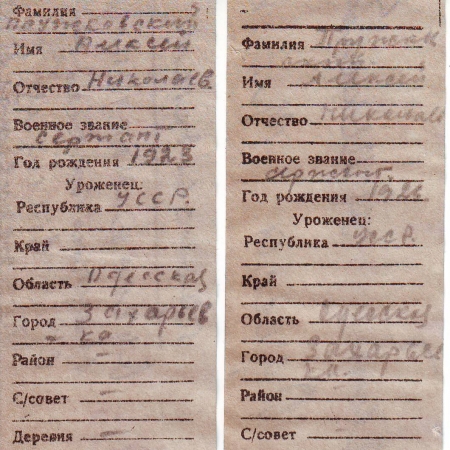 Фамилия
Имя Алексей
Отчество Николаев.
Военное звание
сержант
Год рождения 1923
Уроженец:
Республика УССР.
Край
Область Одесской
Город Захарьев
ка
Район —
С/совет —
Деревня —
Фамилия
Имя Алексей
Отчество
Военное звание
сержант.
Год рождения
Уроженец:
Республика УССР.
Край
Область Одесской
Город Захарьев
ка
Район
С/совет